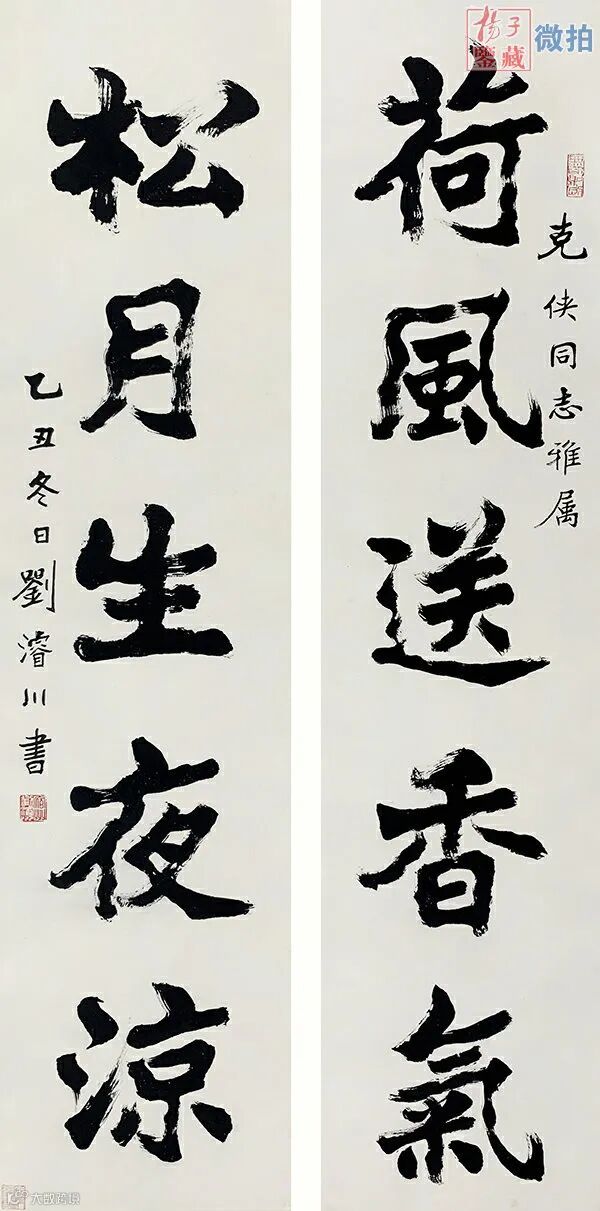 荷風送香氣
克俠同志雅属
松月生夜涼
乙丑冬日劉濬川書
杨子鉴藏
微拍
大数跨境